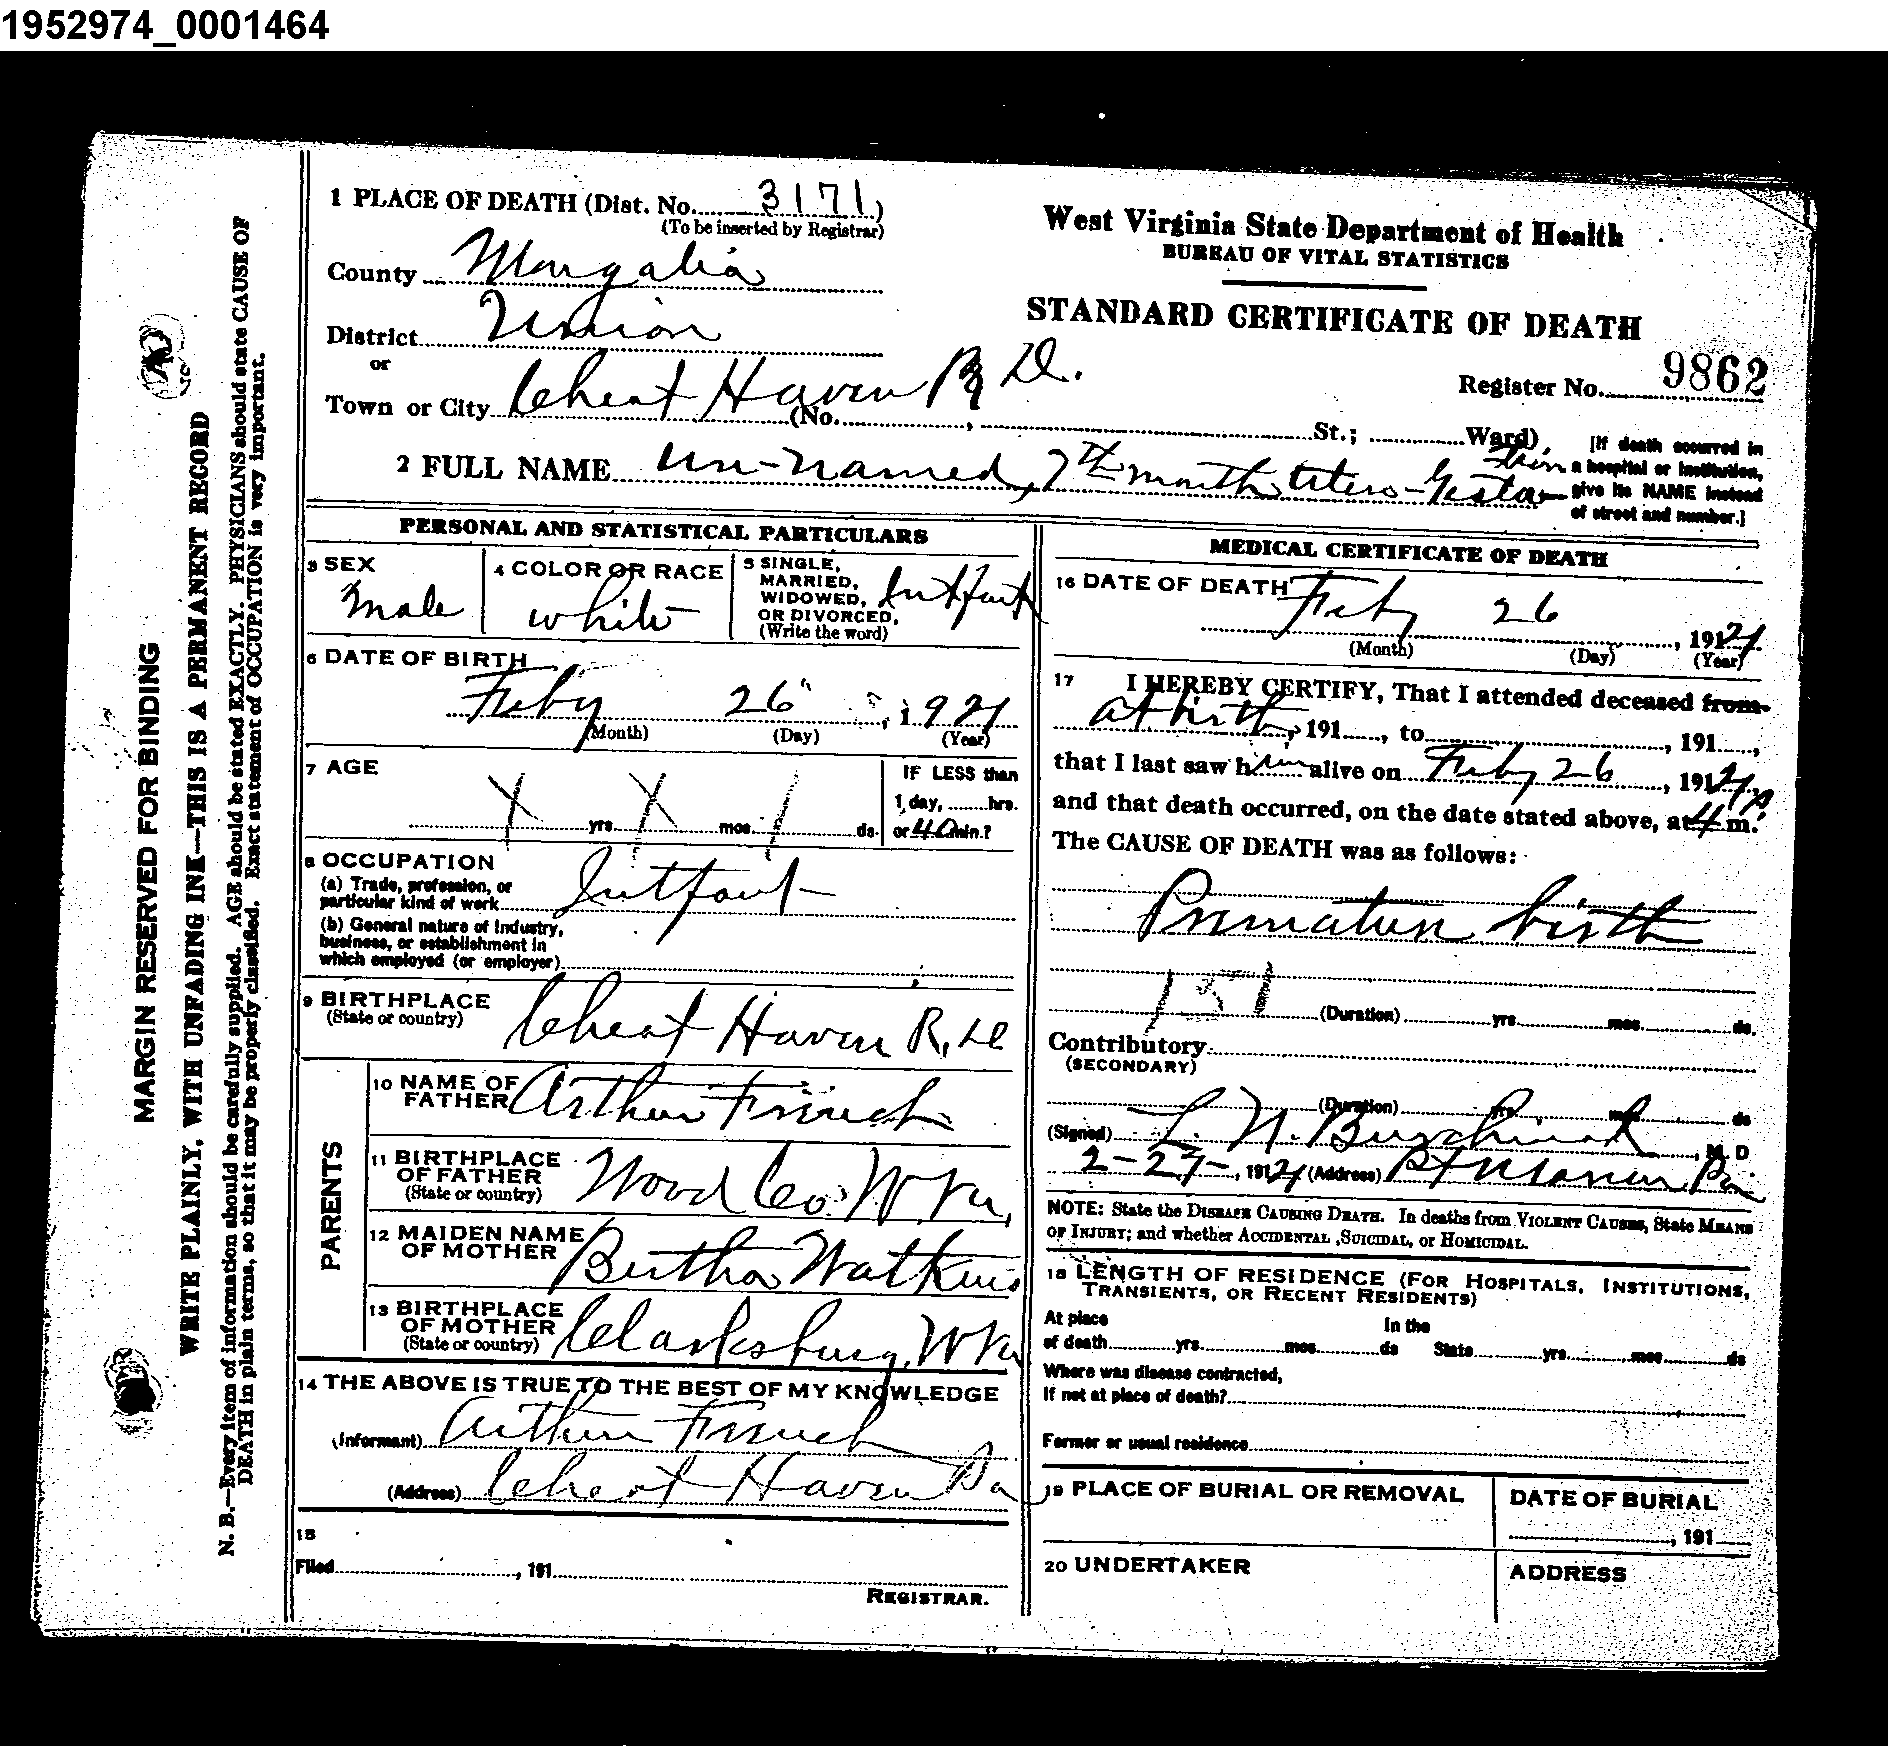 1952974_0001464
1 PLACE OF DEATH (Dist. No. 3171)
(To be inserted by Registrar)
County Mongalia
District Union
or
Town or City Cheat Haven R D.
(No. , St.; Ward)
West Virginia State Department of Health
BUREAU OF VITAL STATISTICS
STANDARD CERTIFICATE OF DEATH
Register No. 9862
[If death occurred in
a hospital or institution,
give its NAME instead
of street and number.]
2 FULL NAME Un-named, 7th month utero-gestation
PERSONAL AND STATISTICAL PARTICULARS
3 SEX
Male
4 COLOR OR RACE
white
5 SINGLE,
MARRIED,
WIDOWED,
OR DIVORCED,
(Write the word)
Intfant
6 DATE OF BIRTH
Feby 26 , 1921
(Month) (Day) (Year)
7 AGE
X yrs. X mos. / ds.
IF LESS than
1 day, hrs.
or 40 min.?
8 OCCUPATION
(a) Trade, profession, or
particular kind of work Intfant
(b) General nature of Industry,
business, or establishment in
which employed (or employer)
9 BIRTHPLACE
(State or country)
Cheat Haven R. D
PARENTS
10 NAME OF
FATHER Arthur French
11 BIRTHPLACE
OF FATHER
(State or country)
Wood Co. W. Va.
12 MAIDEN NAME
OF MOTHER Bertha Watkins
13 BIRTHPLACE
OF MOTHER
(State or country)
Clarksburg, W Va
14 THE ABOVE IS TRUE TO THE BEST OF MY KNOWLEDGE
(Informant) Arthur French
(Address) Cheat Haven Pa
15
Filed , 191
REGISTRAR.
MEDICAL CERTIFICATE OF DEATH
16 DATE OF DEATH
Feby 26 , 19121
(Month) (Day) (Year)
17 I HEREBY CERTIFY, That I attended deceased from
at birth, 191 , to , 191 ,
that I last saw him alive on Feby 26 , 19121
and that death occurred, on the date stated above, at 4 P m.
The CAUSE OF DEATH was as follows:
Premature birth
151
(Duration) yrs. mos. ds.
Contributory
(SECONDARY)
(Duration) yrs. mos. ds
(Signed) L. N. , M. D
2-27-, 19121 (Address) Pt Marion Pa
NOTE: State the DISEASE CAUSING DEATH. In deaths from VIOLENT CAUSES, State MEANS
OF INJURY; and whether ACCIDENTAL ,SUICIDAL, or HOMICIDAL.
18 LENGTH OF RESIDENCE (FOR HOSPITALS, INSTITUTIONS,
TRANSIENTS, OR RECENT RESIDENTS)
At place In the
of death yrs. mos. ds State yrs. mos. ds
Where was disease contracted,
If not at place of death?
Former or usual residence
19 PLACE OF BURIAL OR REMOVAL
DATE OF BURIAL
, 191
20 UNDERTAKER
ADDRESS
MARGIN RESERVED FOR BINDING
WRITE PLAINLY, WITH UNFADING INK—THIS IS A PERMANENT RECORD
N. B.—Every item of information should be carefully supplied. AGE should be stated EXACTLY. PHYSICIANS should state CAUSE OF
DEATH in plain terms, so that it may be properly classified. Exact statement of OCCUPATION is very important.